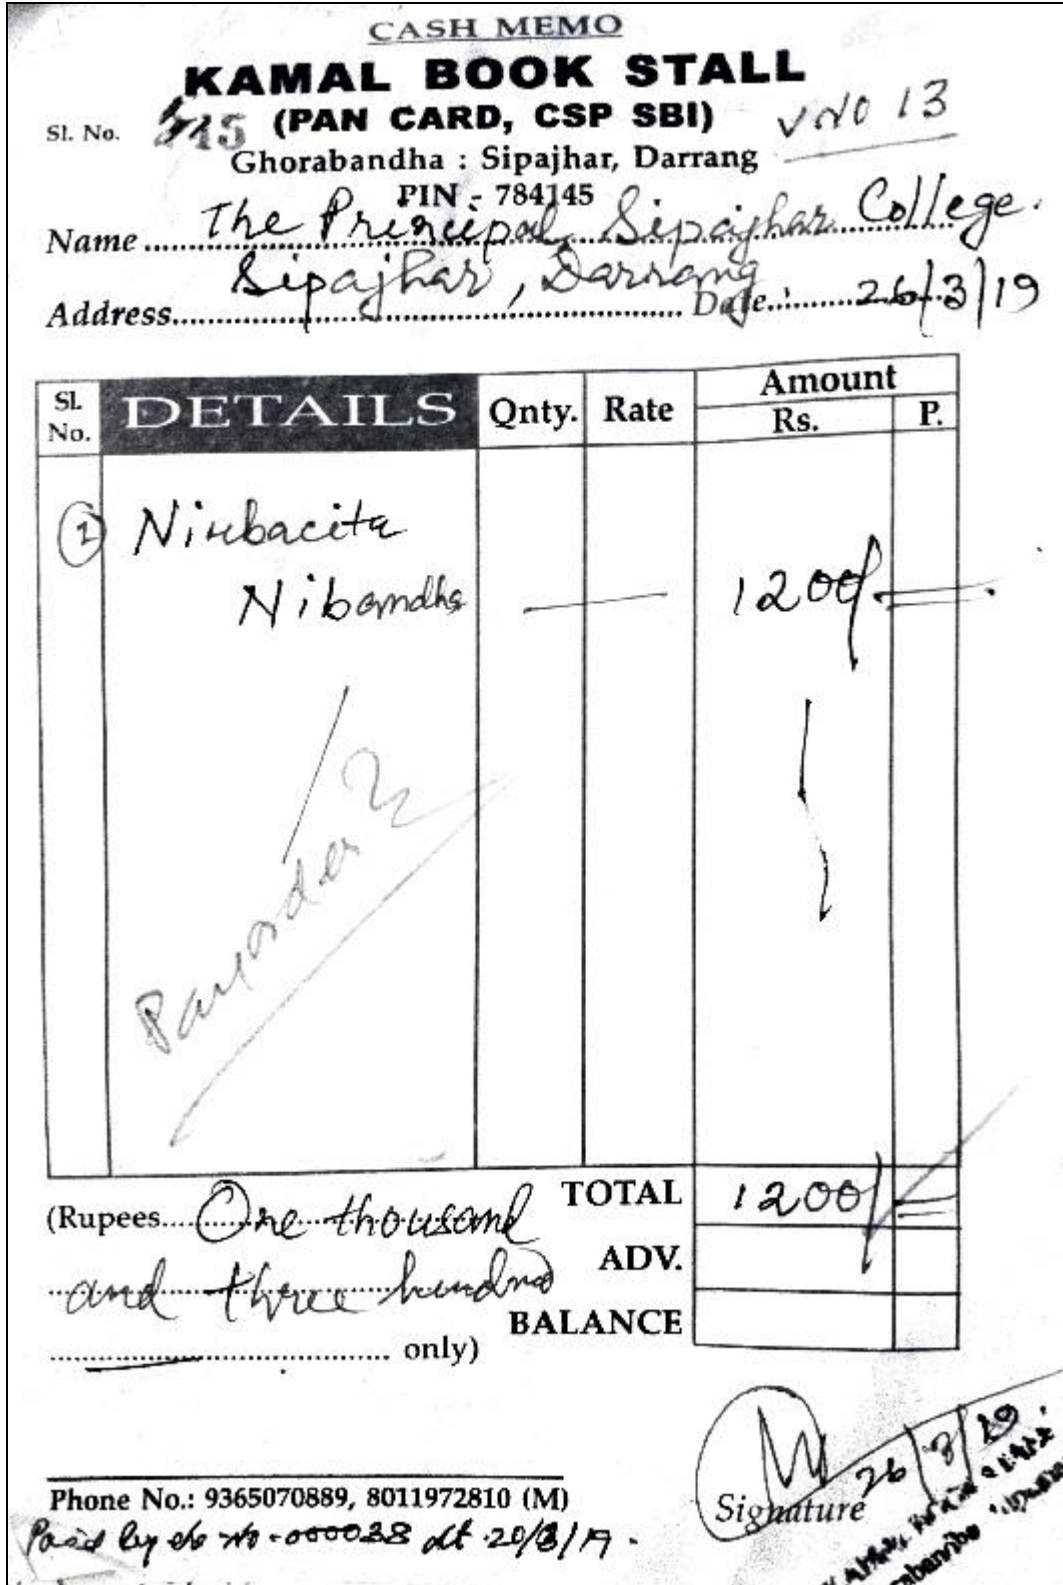 CASH MEMO
KAMAL BOOK STALL
Sl. No. 515 (PAN CARD, CSP SBI) V NO 13
Ghorabandha : Sipajhar, Darrang
PIN - 784145
Name The Principal, Sipajhar College.
Address Sipajhar, Darrang Date : 26/3/19
Sl. No. DETAILS Qnty. Rate Amount
Rs. P.
1 Nirbacita
Nibandha — 1200/=
Pay order
TOTAL 1200/=
(Rupees One thousand
ADV.
and three hundred
BALANCE
only)
26/3/19
Phone No.: 9365070889, 8011972810 (M)
Signature
Paid by ch no - 000038 dt